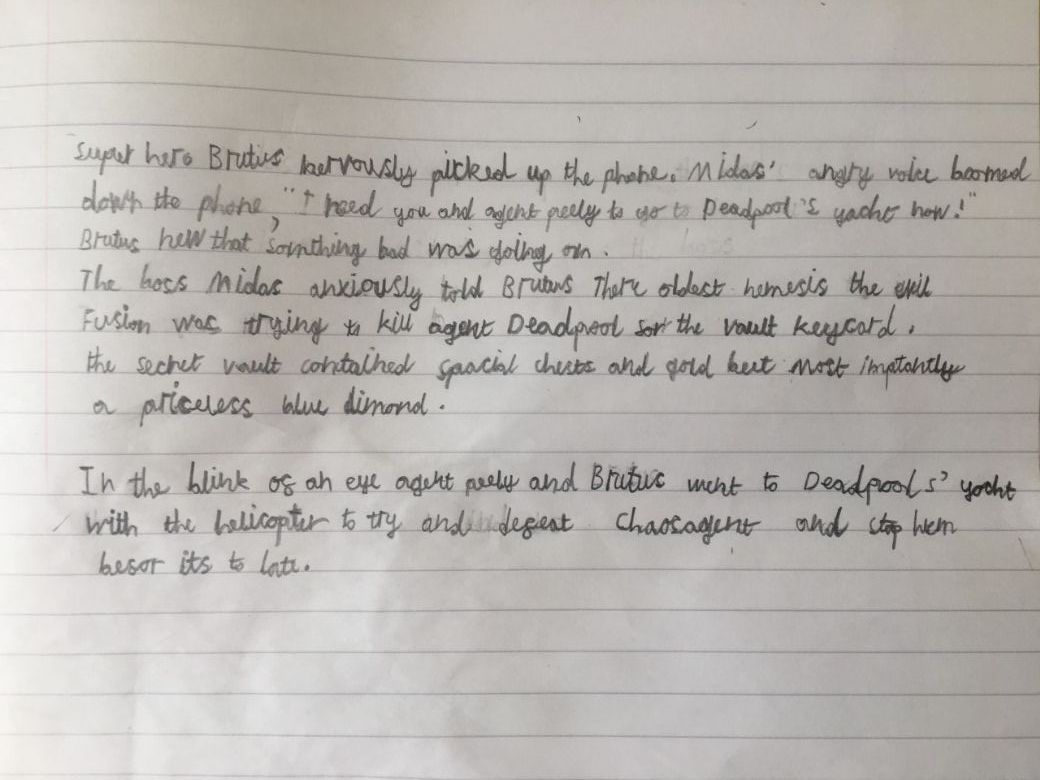 Super hero Brutus nervously picked up the phone. Midas' angry voice boomed
down the phone, "I need you and agent peely to go to Deadpool's yacht now!"
Brutus new that somthing bad was going on.
The boss Midas anxiously told Brutus There oldest nemesis the evil
Fusion was trying to kill agent Deadpool for the vault keycard.
the secret vault contained spacial chests and gold but most imptantly
a priceless blue dimond.
In the blink of an eye agent peely and Brutus went to Deadpools' yacht
with the helicopter to try and defeat Chaosagent and stop hem
befor its to late.